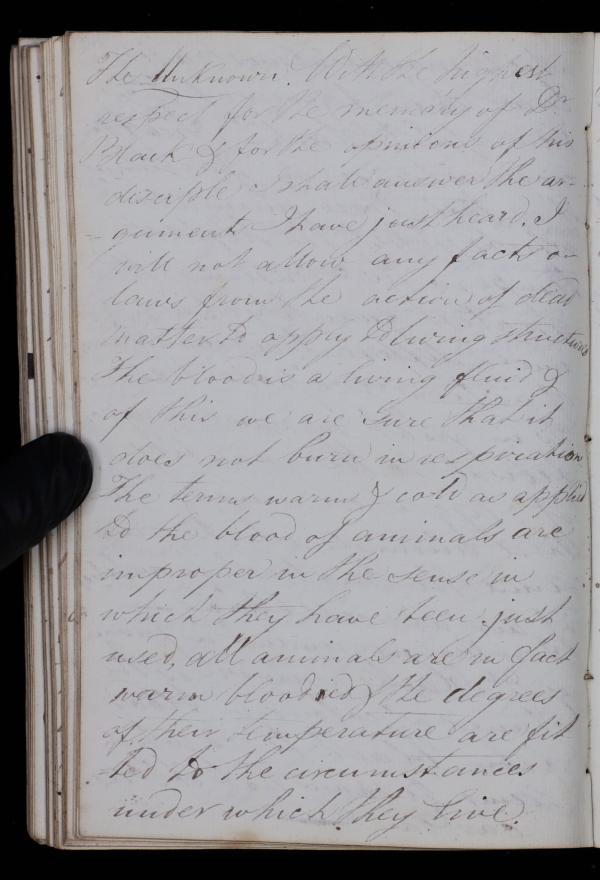 The Unknown. With the highest
respect for the memory of Dr
Black & for the opinions of his
disciple I shall answer the ar-
-guments I have just heard. I
will not allow any facts or
laws from the action of dead
matter to apply to living structures
The blood is a living fluid &
of this we are sure that it
does not burn in respiration
The terms warm & cold as applied
to the blood of animals are
improper in the sense in
which they have been just
used, all animals are in fact
warm blooded & the degrees
of their temperature are fit
-ted to the circumstances
under which they live.